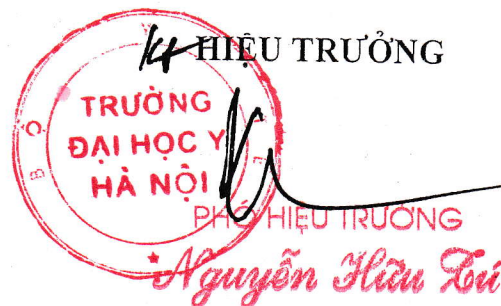 K/T HIỆU TRƯỞNG
TRƯỜNG
ĐẠI HỌC Y
HÀ NỘI
BỘ Y TẾ
PHÓ HIỆU TRƯỞNG
Nguyễn Hữu Tú